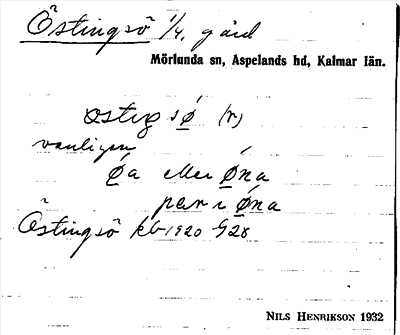 Östingsö 1/4, gård
Mörlunda sn, Aspelands hd, Kalmar län.
ostıg sø̀ (r)
vanligen
Øa eller Øna
par i Øna
Östingsö kb 1920 S28
NILS HENRIKSON 1932